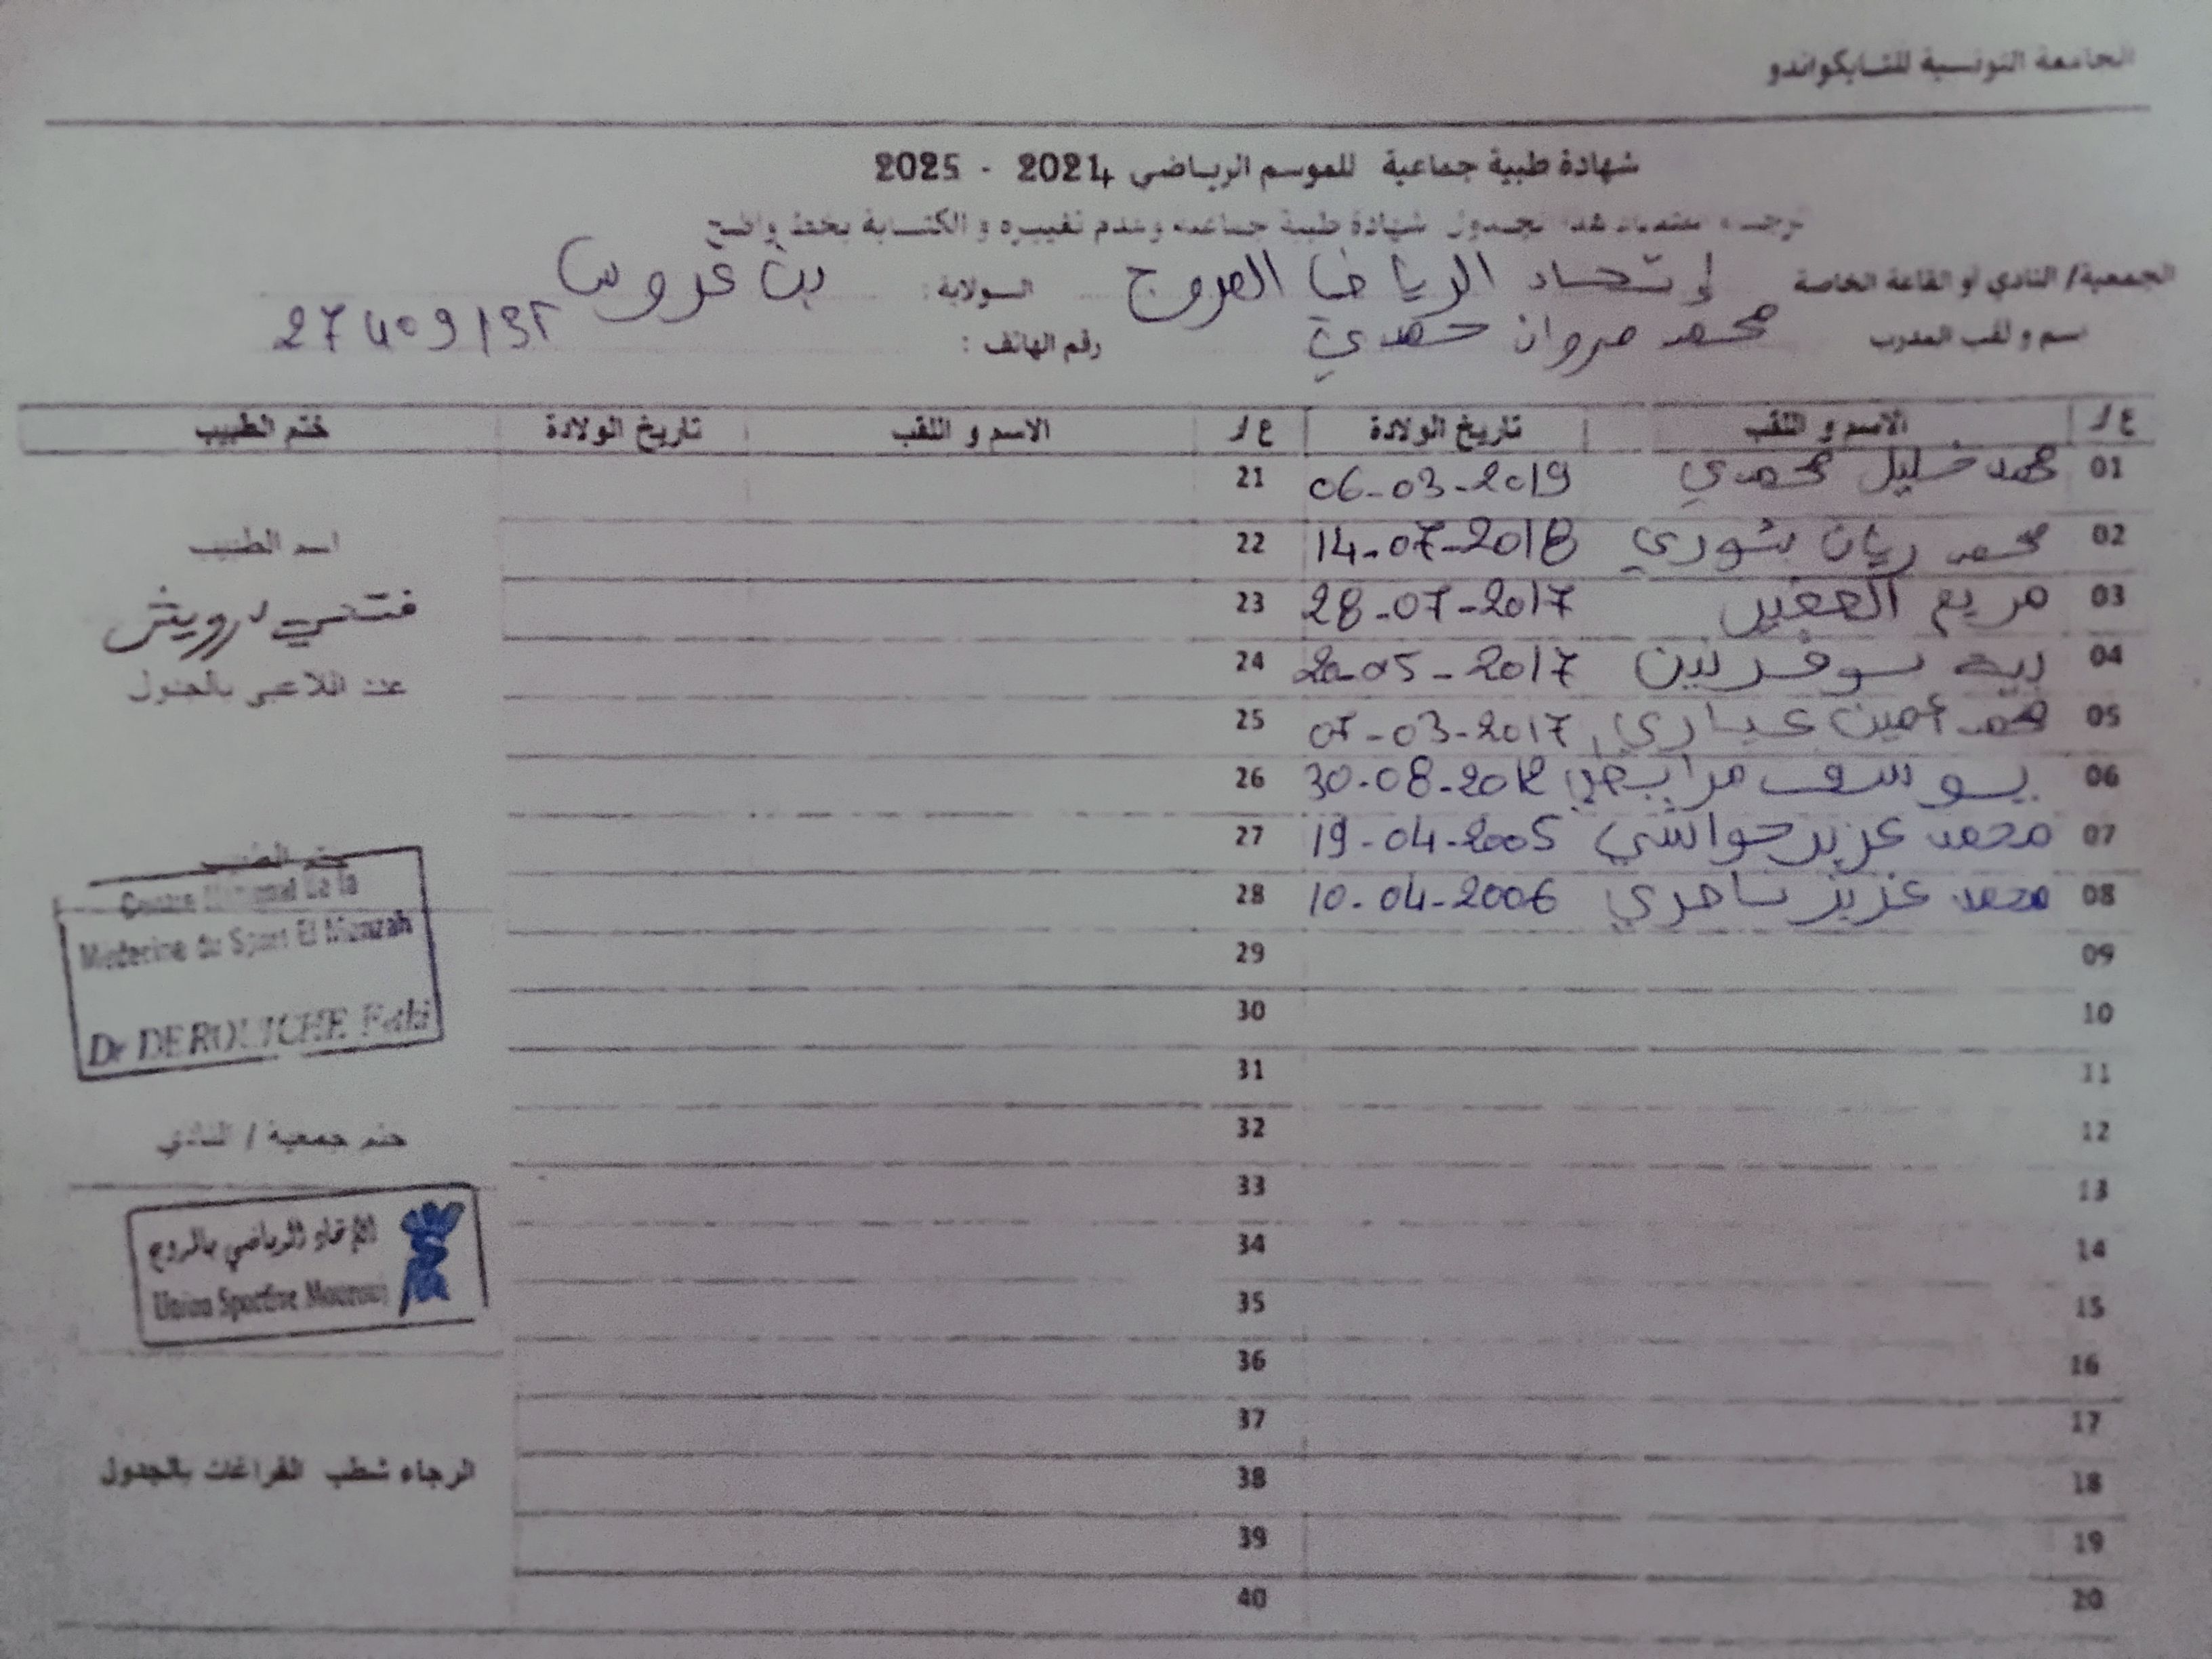 الجامعة التونسية للتايكواندو
شهادة طبية جماعية للموسم الرياضي 2024 - 2025
شهادة طبية جماعية وعدم تغييره و الكتابة بخط واضح
الجمعية/ النادي أو القاعة الخاصة إتحاد الرياضي المروج الولاية: بن عروس
اسم و لقب المدرب محمد مروان حمدي رقم الهاتف :
ع/ر الاسم و اللقب تاريخ الولادة ع/ر الاسم و اللقب تاريخ الولادة ختم الطبيب
01 محمد خليل محمدي 06-03-2019 21
02 محمد ريان 14-07-2018 22
اسم الطبيب
03 مريم 28-07-2017 23
فتحي درويش
04 20-05-2017 24
عدد اللاعبي بالجدول
05 محمد أمين عياري 07-03-2017 25
06 يوسف مرابطي 30-08-2012 26
07 محمد عزيز حواشي 19-04-2005 27
ختم الطبيب
08 محمد عزيز 10-04-2006 28
Centre National De la
Médecine du Sport El Menzah
Dr DEROUICHE Fethi
09 29
10 30
11 31
12 32
ختم جمعية / النادي
13 33
الإتحاد الرياضي بالمروج
Union Sportive Mourouj
14 34
15 35
16 36
17 37
18 38
الرجاء شطب الفراغات بالجدول
19 39
20 40